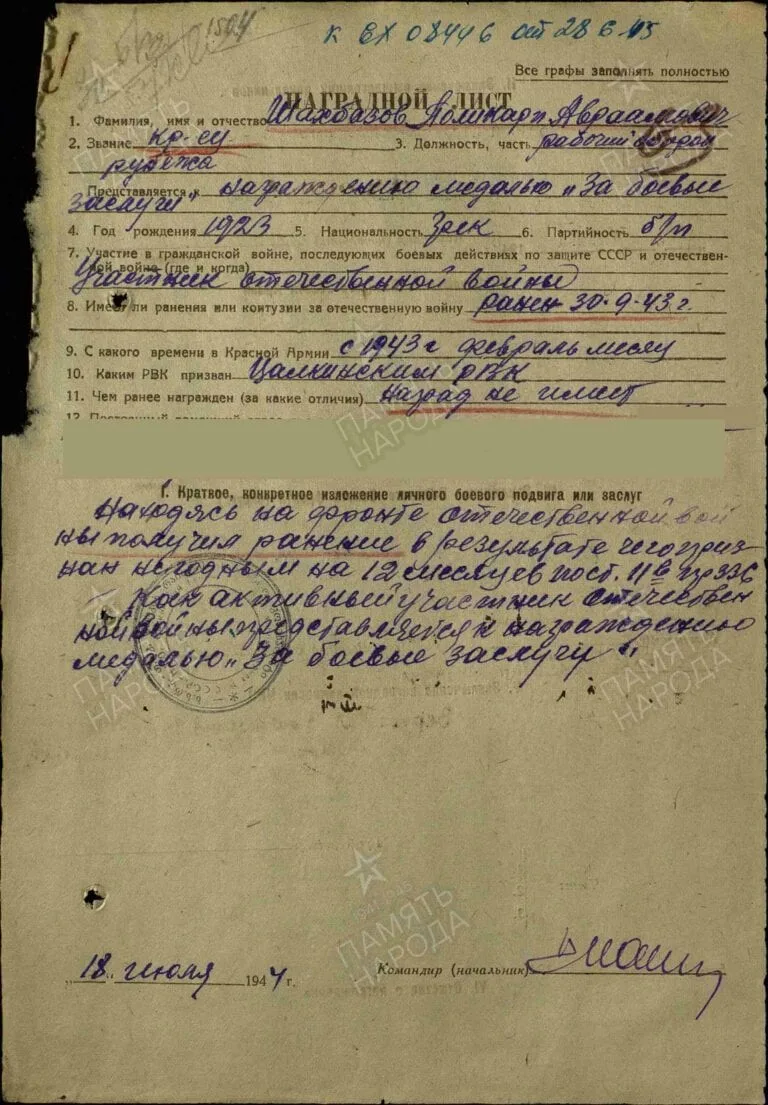 1504
к вх 08446 от 28 6 45
Все графы заполнять полностью
НАГРАДНОЙ ЛИСТ
1. Фамилия, имя и отчество Шахбазов Поликарп Авраамович
2. Звание кр-ец 3. Должность, часть рабочий
рубежа
Представляется к награждению медалью „За боевые
заслуги"
4. Год рождения 1923 5. Национальность грек 6. Партийность б/п
7. Участие в гражданской войне, последующих боевых действиях по защите СССР и отечествен-
ной войне (где и когда)
Участник отечественной войны
8. Имеет ли ранения или контузии за отечественную войну ранен 30.9.43 г.
9. С какого времени в Красной Армии с 1943 г февраль месяц
10. Каким РВК призван Цалкинским РВК
11. Чем ранее награжден (за какие отличия) Наград не имеет
12.
I. Краткое, конкретное изложение личного боевого подвига или заслуг
Находясь на фронте отечественной вой
ны получил ранение в результате чего приз-
нан негодным на 12 месяцев пост. 11в пр 336
Как активный участник отечествен
ной войны представляется к награждению
медалью „За боевые заслугу".
„18" июля 1944 г.
Командир (начальник)
ПАМЯТЬ
НАРОДА
ПАМЯТЬ
НАРОДА
ПАМЯТЬ
НАРОДА
ПАМЯТЬ
НАРОДА